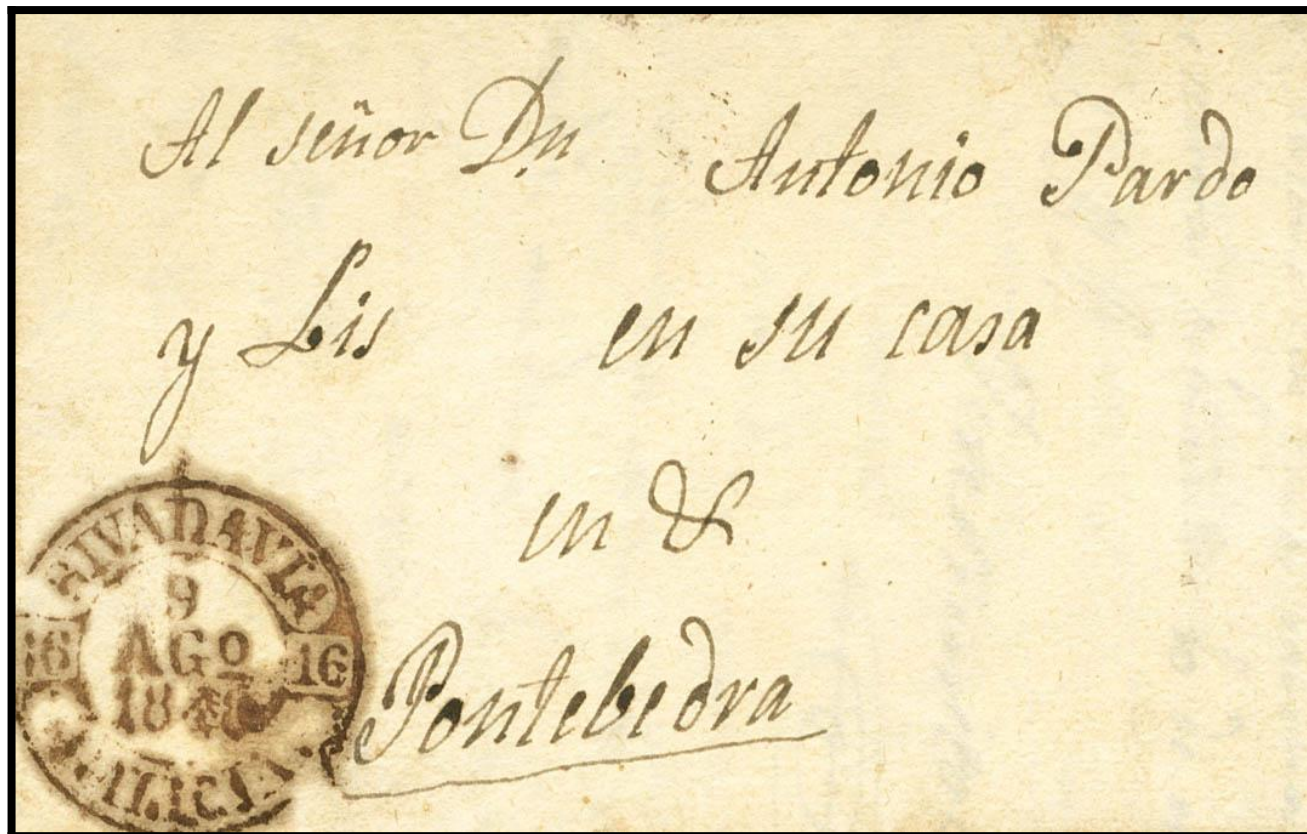 Al señor Dn Antonio Pardo
y Lis en su casa
en &
Pontebedra
RIVADAVIA
9
AGO
16 16
GALICIA